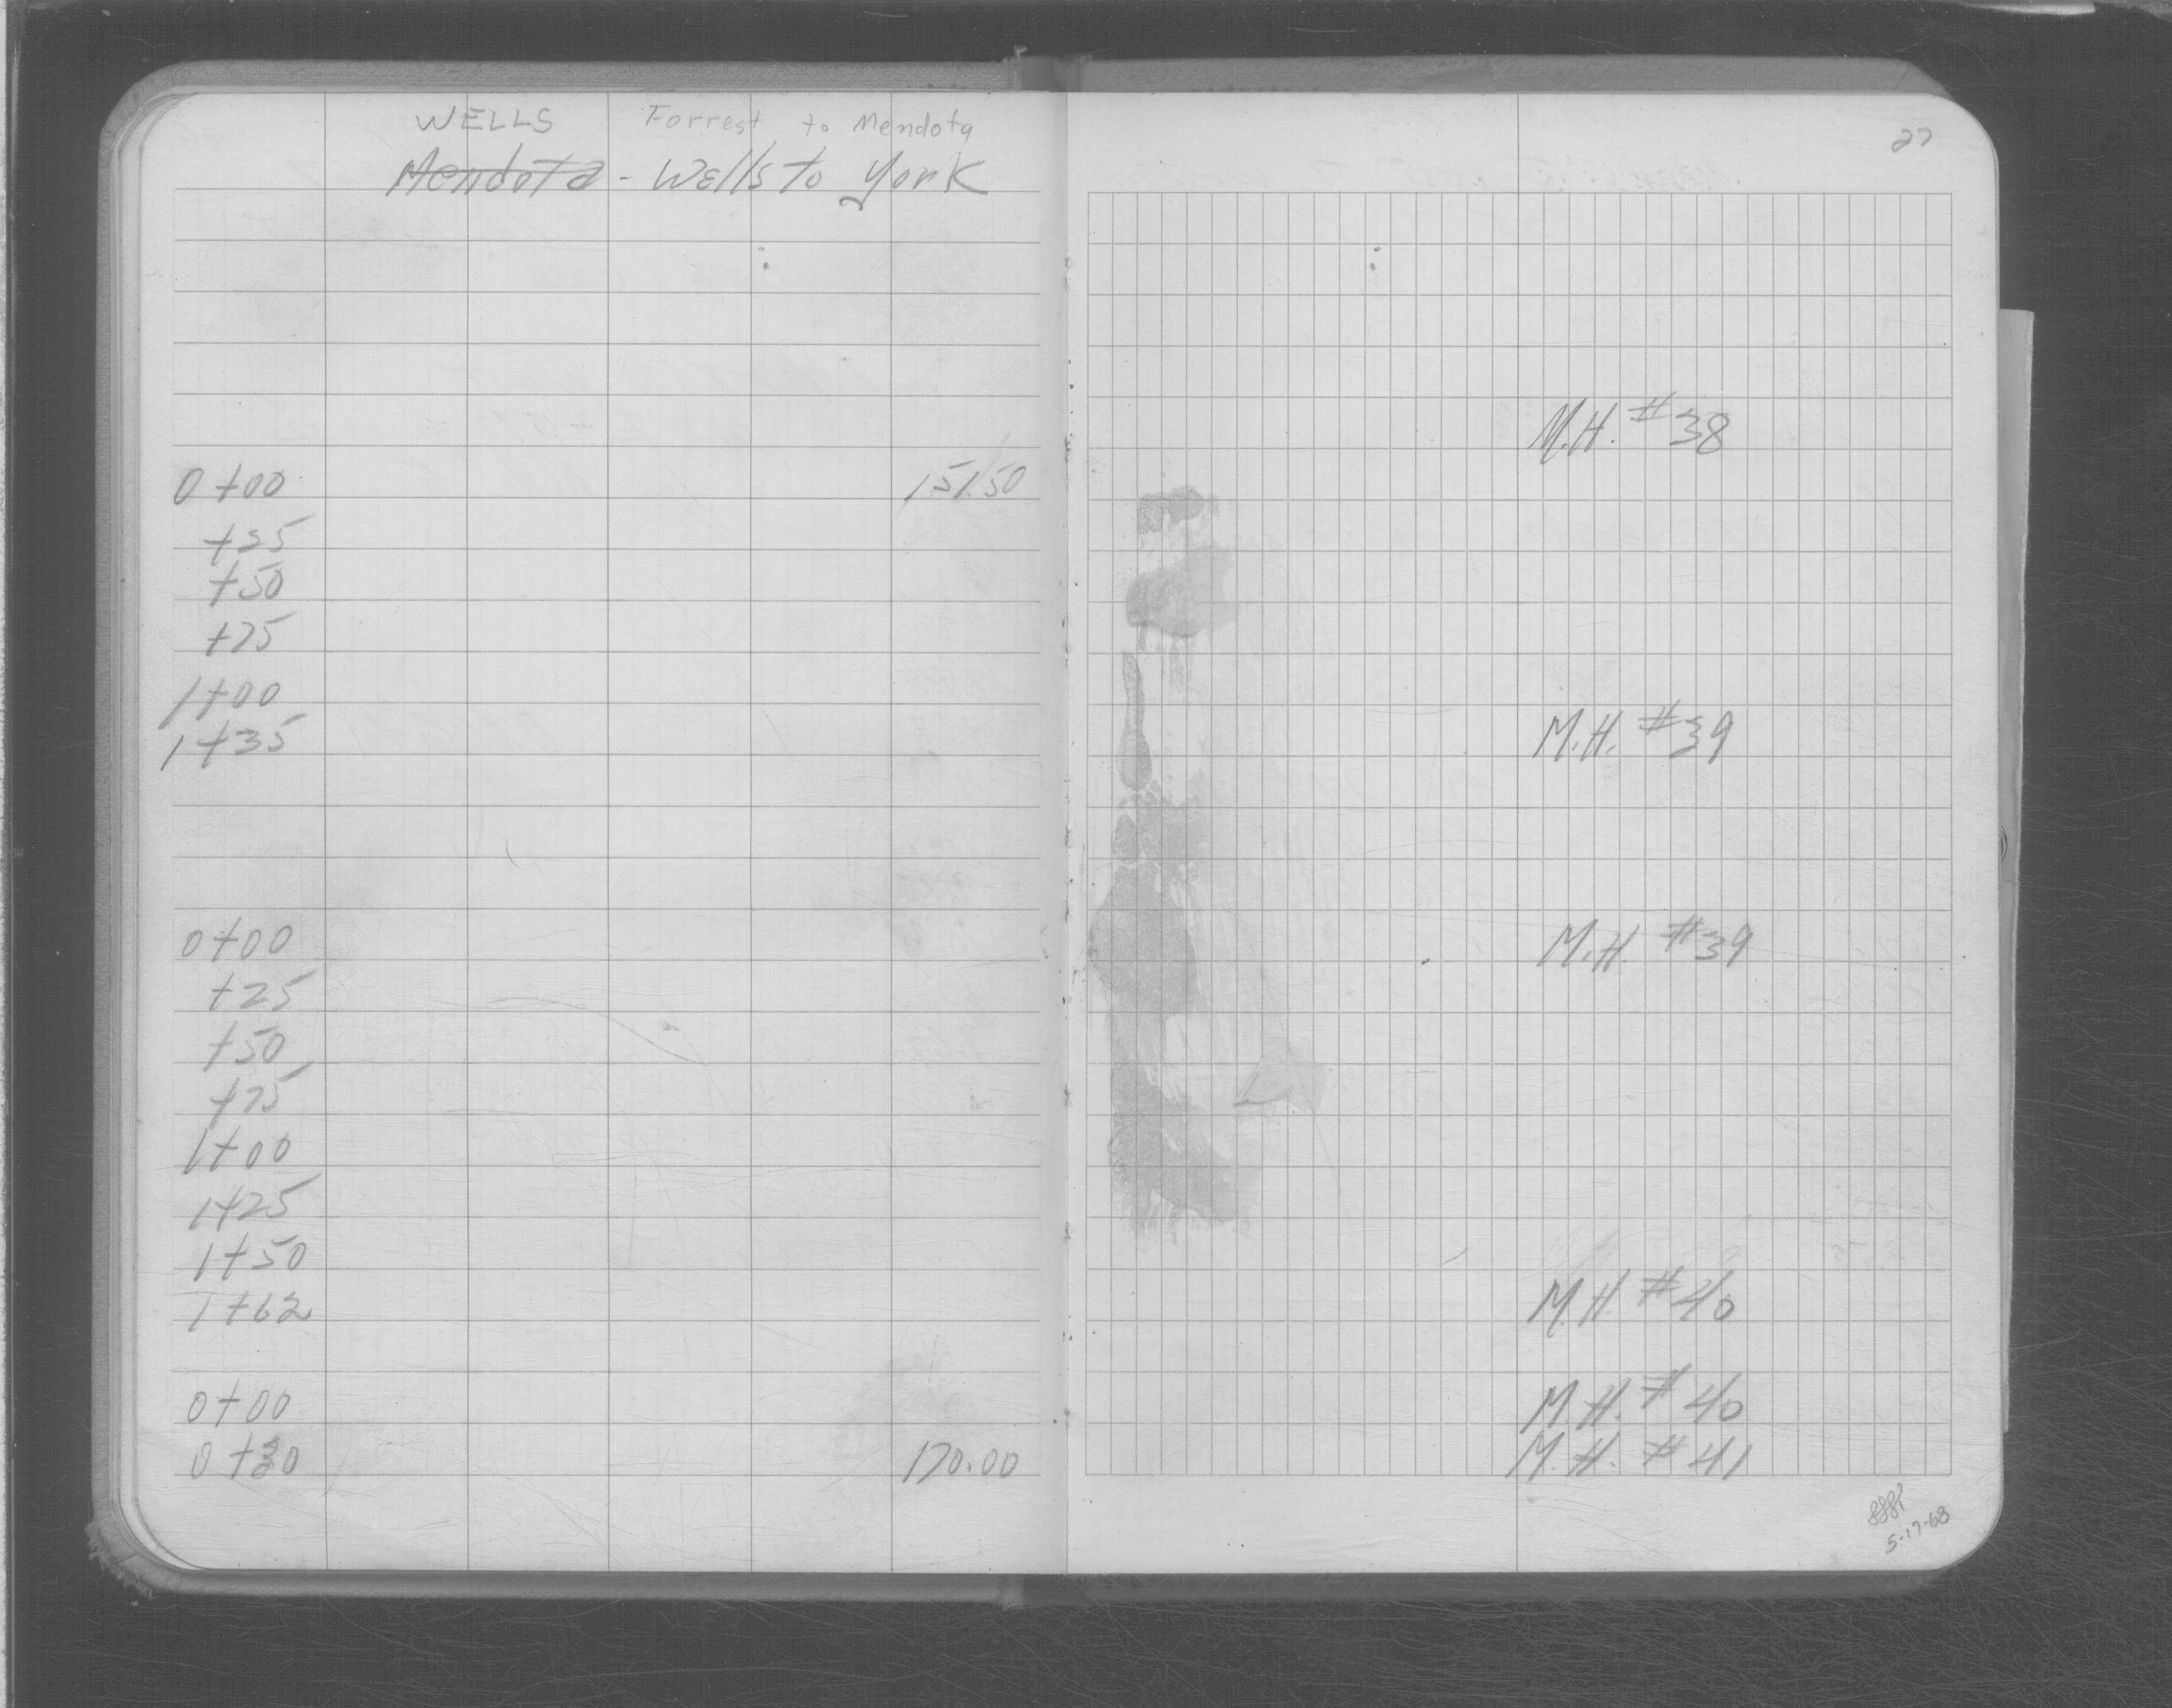 WELLS Forrest to Mendota
Mendota - Wells to York
27
M.H. #38
0+00 151.50
+25
+50
+75
1+00
1+35 M.H. #39
0+00 M.H. #39
+25
+50
+75
1+00
1+25
1+50
1+62 M.H. #40
0+00 M.H. #40
0+30 170.00 M.H. #41
5-17-68